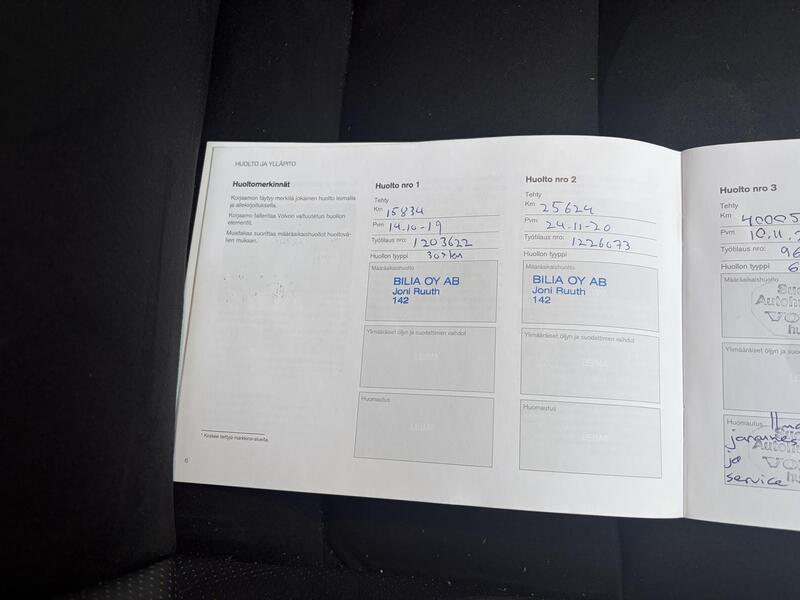 HUOLTO JA YLLÄPITO
Huoltomerkinnät
Korjaamon täytyy merkitä jokainen huolto leimalla
ja allekirjoituksella.
Korjaamo tallentaa Volvon valtuutetun huollon
elementit.
Muistakaa suorittaa määräaikaishuollot huoltovä-
lien mukaan.
¹ Koskee tiettyjä markkina-alueita.
6
Huolto nro 1
Tehty
Km 15834
Pvm 14.10-19
Työtilaus nro: 1203622
Huollon tyyppi 30tkm
Määräaikaishuolto
BILIA OY AB
Joni Ruuth
142
Ylimääräiset öljyn ja suodattimen vaihdot
LEIMA
Huomautus
LEIMA
Huolto nro 2
Tehty
Km 25624
Pvm 24.11-20
Työtilaus nro: 1226073
Huollon tyyppi
Määräaikaishuolto
BILIA OY AB
Joni Ruuth
142
Ylimääräiset öljyn ja suodattimen vaihdot
LEIMA
Huomautus
LEIMA
Huolto nro 3
Tehty
Km 40005
Pvm 10.11.
Työtilaus nro: 96
Huollon tyyppi 6
Määräaikaishuolto
Ylimääräiset öljyn ja suo
Huomautus
ja
service